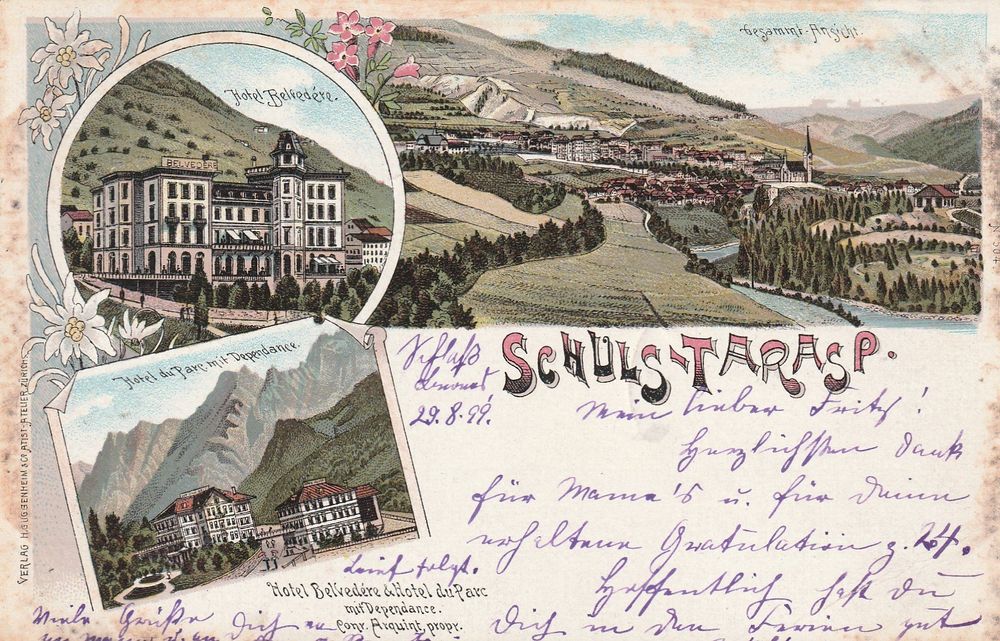 Gesammt-Ansicht.
Hotel Belvedère.
BELVEDERE
Hotel du Parc mit Dependance.
SCHULS-TARASP.
Schloß
29.8.99.
Mein lieber Fritz!
Herzlichsten Dank
für Mama's u. für Deine
erhaltene Gratulation z. 24.
Hoffentlich hast du
Dich in den Ferien gut
Brief folgt.
Hotel Belvedère & Hotel du Parc
mit Dependance.
Conr. Arquint, propr.
Viele Grüße Dich
VERLAG H. GUGGENHEIM & Co ATIST-ATELIER, ZÜRICH.